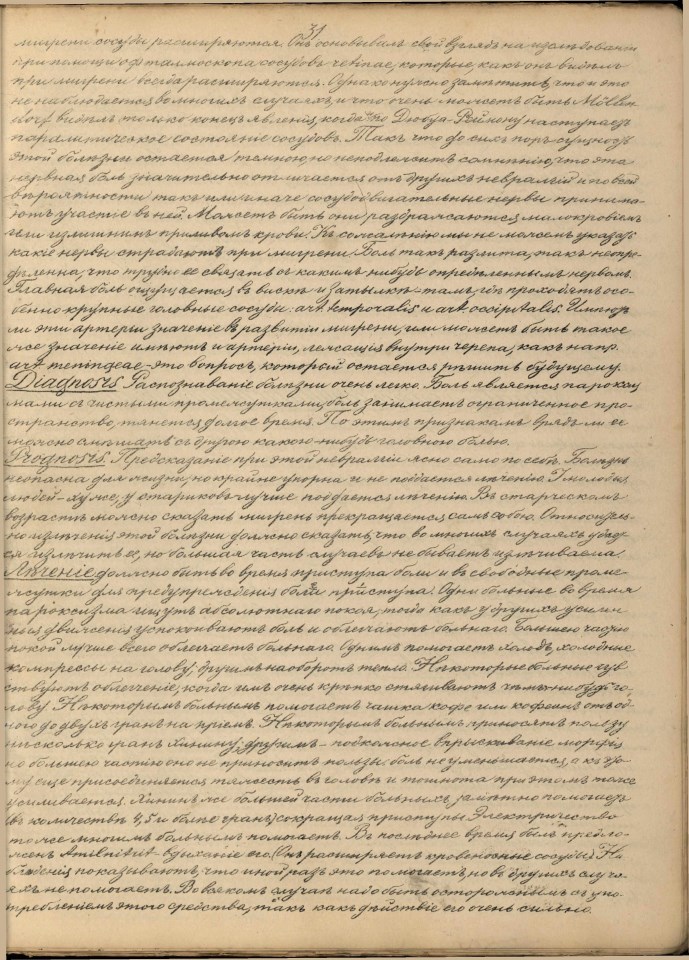 31
мигрени сосуды расширяются. Онъ основывалъ свой взглядъ на изслѣдованіи
при помощи офталмоскопа сосудовъ retinae, которые, какъ онъ видѣлъ
при мигрени всегда расширяются. Однако нужно замѣтить, что и это
не наблюдается во многихъ случаяхъ, и что очень можетъ быть Möllen
dorf видѣлъ только конецъ явленія, когда по Дюбуа-Реймону наступаетъ
паралитическое состояніе сосудовъ. Такъ что до сихъ поръ сущность
этой болѣзни остается темною, но неподлежитъ сомнѣнію, что эта
нервная боль значительно отличается отъ другихъ невралгій и по всей
вѣроятности такъ или иначе сосудодвигательные нервы принима-
ютъ участіе въ ней. Можетъ быть они раздражаются малокровіемъ
или излишнимъ приливомъ крови. Къ сожалѣнію мы не можемъ указать
какіе нервы страдаютъ при мигрени. Боль такъ разлита, такъ неопре-
дѣленна, что трудно ее связать съ какимъ нибудь опредѣленнымъ нервомъ.
Главная боль ощущается въ вискѣ и затылкѣ - тамъ, гдѣ проходятъ осо-
бенно крупные головные сосуды: art. temporalis и art. occipitalis. Имѣют
ли эти артеріи значеніе въ развитіи мигрени, или можетъ быть такое
же значеніе имѣютъ и артеріи, лежащія внутри черепа, какъ напр.
art. meningeae - это вопросъ, который остается рѣшить будущему.
Diagnosis. Распознаваніе болѣзни очень легко. Боль является пароксиз
мами съ чистыми промежутками, боль занимаетъ ограниченное про-
странство, тянется долгое время. По этимъ признакамъ врядъ ли ее
можно смѣшать съ другою какою-нибудь головною болью.
Prognosis. Предсказаніе при этой невралгіи ясно само по себѣ. Болѣзнь
неопасна для жизни, но крайне упорна и не поддается лѣченію. У молодыхъ
людей - хуже, у стариковъ лучше поддается лѣченію. Въ старческомъ
возрастѣ можно сказать мигрень прекращается самъ собою. Относитель-
но излѣченія этой болѣзни должно сказать, что во многихъ случаяхъ удает-
ся излѣчить ее, но большая часть случаевъ не бываетъ излѣчиваема.
Лѣченіе должно быть во время приступа боли и въ свободные проме-
жутки для предупрежденія боли приступа. Одни больные во время
пароксизма ищутъ абсолютнаго покоя, тогда какъ у другихъ усилен
ныя движенія успокоиваютъ боль и облегчаютъ больнаго. Большею частію
покой лучше всего облегчаетъ больнаго. Однимъ помогаетъ холодъ, холодные
компрессы на голову; другимъ наоборотъ тепло. Нѣкоторые больные чув
ствуютъ облегченіе, когда имъ очень крѣпко стягиваютъ чѣмъ-нибудь го-
лову. Нѣкоторымъ больнымъ помогаетъ чашка кофе или кофеинъ отъ од-
ного до двухъ гранъ на пріемъ. Нѣкоторымъ больнымъ приноситъ пользу
нѣсколько гранъ хинину; другимъ - подкожное впрыскиваніе морфія,
но большею частію оно не приноситъ пользы: боль не уменьшается, а къ то-
му еще присоединяется тяжесть въ головѣ и тошнота при этомъ тоже
усиливается. Хининъ же большей части больныхъ замѣтно помогаетъ
(въ количествѣ 4, 5 и болѣе гранъ) сокращая приступы. Электричество
тоже многимъ больнымъ помогаетъ. Въ послѣднее время былъ предло-
женъ Amilnitrit - вдыханіе его. (Онъ расширяетъ кровеносные сосуды). На-
блюденія показываютъ, что иной разъ это помогаетъ, но въ другихъ случа-
яхъ не помогаетъ. Во всякомъ случаѣ надо быть осторожнымъ съ упо-
требленіемъ этого средства, такъ какъ дѣйствіе его очень сильно.